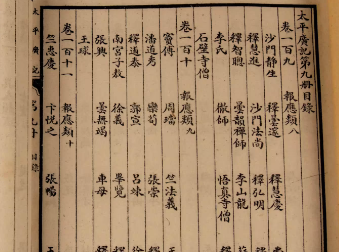 太平廣記第九册目錄
卷一百九 報應類八
沙門静生 釋曇邃 釋慧慶
釋慧進 沙門法尚 釋弘明
釋智聰 曇韻禪師 李山龍
李氏 徹師 悟真寺僧
石壁寺僧
卷一百十 報應類九
竇傅 周璫 竺法義
潘道秀 欒荀 張崇
釋道泰 郭宣 呂竦
南宮子敖 徐義 畢覽
張興 曇無竭 車母
王球
卷一百十一 報應類十
竺惠慶 卞悦之 張暢
太平廣記 目錄